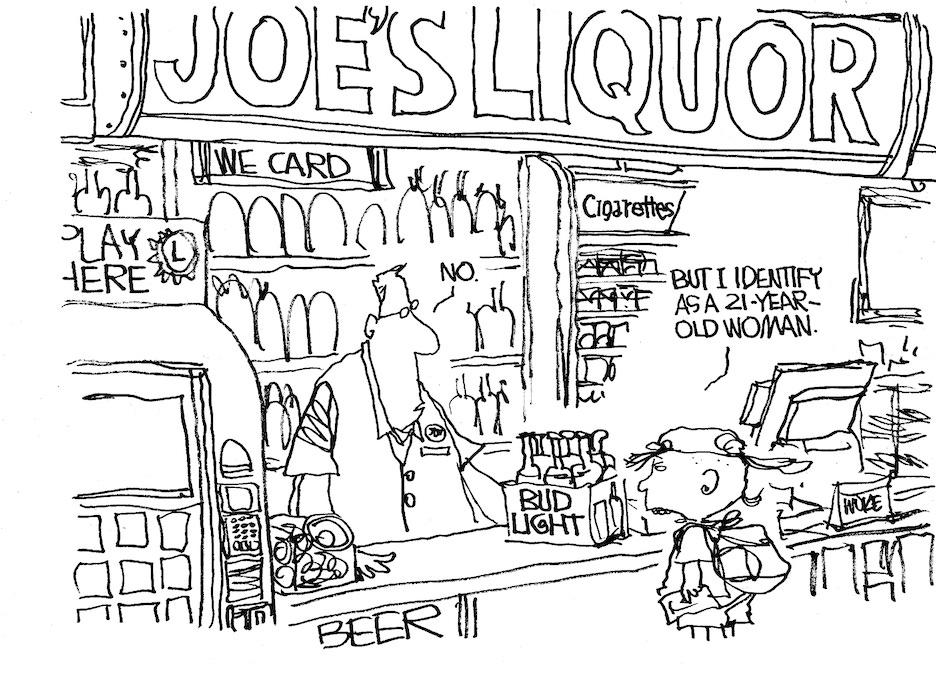 JOE'S LIQUOR
WE CARD
PLAY
HERE
L
Cigarettes
NO.
BUT I IDENTIFY
AS A 21-YEAR-
OLD WOMAN.
BUD
LIGHT
WOKE
BEER